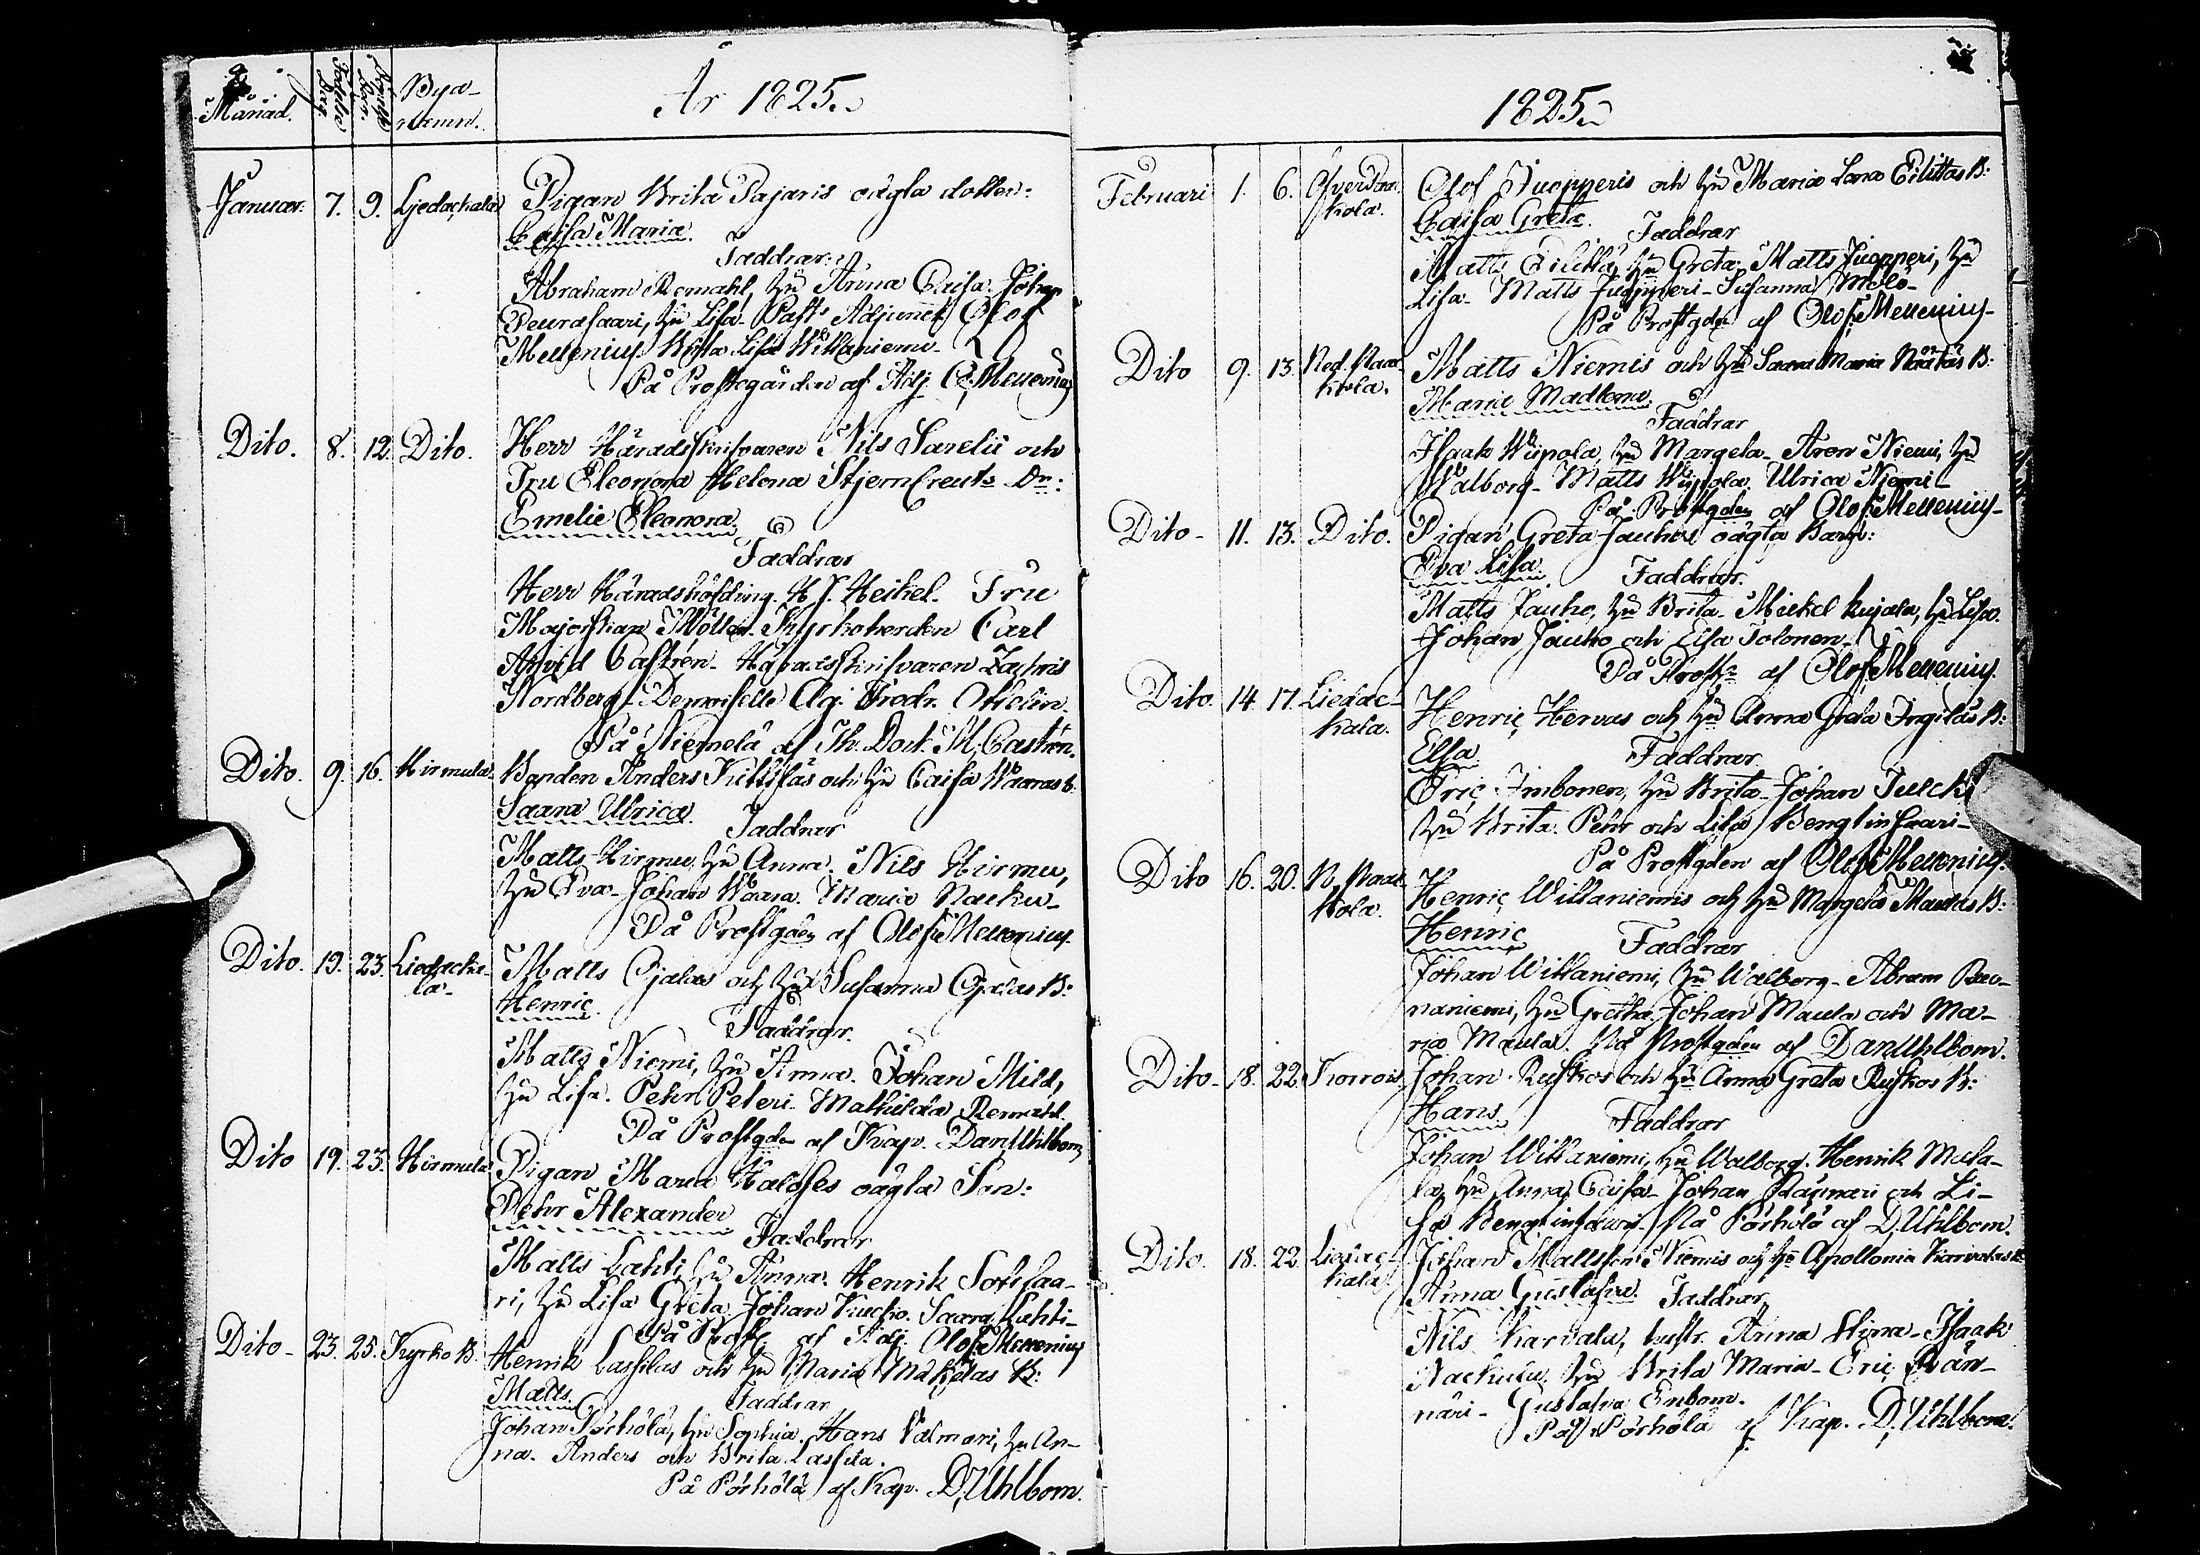 Månad.
Födelse Dag
Döpelse Dag
Bya-
namn.
År 1825.
Januar. 7. 9. Liedackala
Pigan Brita Pajaris oägta dotter:
Caisa Maria.
Faddrar:
Abraham Remahl, Hu Anna Caisa. Johan
Peurasaari, Hu Lisa. Past. Adjunct Olof
Mellenius. Brita Lisa Wittaniemi.
På Prostgården af Adj. O. Mellenius
Dito. 8. 12. Dito.
Herr Häradsskrifvaren Nils Sarelii och
Fru Eleonora Helena Stjerncreutz Dr:
Emelie Eleonora.
Faddrar
Herr Häradshöfding H. J. Heikel. Fru
Majorskan Möller. Kyrkoherden Carl
Arvid Castrén. Häradsskrifvaren Zachris
Nordberg. Demoiselle
På Niemelä af Th. Doct. M. Castrén.
Dito. 9. 16. Hirmula
Bonden Anders Kittilas och Hu Caisa Waaras B.
Saara Ulrica.
Faddrar
Matts Hirmu, Hu Anna. Nils Hirmu,
Hu Eva. Johan Waara. Maria Nacku-
På Prostgden af Olof Mellenius.
Dito. 19. 23. Liedacka-
la.
Matts Ojalas och Hu Susanna Ojalas B:
Henric.
Faddrar.
Matts Niemi, Hu Anna. Johan Mild,
Hu Lisa. Pehr Peteri. Mathilda Remahl.
På Prostgden af Kap. Dan. Uhlbom
Dito 19. 23. Hirmula
Pigan Maria oägta Son:
Pehr Alexander
Faddrar
Matts Lahti, Hu Anna. Henrik Sotisaa-
ri, Hu Lisa Greta. Johan Saara Lahti-
På Prostg. af Adj. Olof Mellenius
Dito. 23. 25. Kyrko B.
Henrik Lassilas och Hu Maria Mäkelas B:
Matts.
Faddrar
Johan Pörhölä, Hu Sophia. Hans Palmari, Hu An-
na. Anders och Brita Lassila.
På Pörhölä af Kap. D. Uhlbom.
1825.
Februari 1. 6. Öfver
kola.
Olof Juopperis och Hu Maria Lena Eilittas B:
Caisa Greta.
Faddrar
Matts Eilitta, Hu Greta. Matts Juopperi, Hu
Lisa. Matts Juopperi. Susanna
På Prostgden af Olof Mellenius.
Dito 9. 13. Ned. Raa-
kola.
Matts Niemis och Hu Saara Maria Näätäs B:
Maria Madlena.
Faddrar
Isaak Wiipola, Hu Margeta. Aron Niemi, Hu
Walborg. Matts Wiipola. Ulrica Niemi.
På Prostgden af Olof Mellenius.
Dito. 11. 13. Dito.
Pigan Greta Jauhos oägta Barn:
Eva Lisa.
Faddrar.
Matts Jauho, Hu Brita. Mickel Kujala, Hu Lisa.
Johan Jauho och Lisa Tolonen.
På Prostg. af Olof Mellenius.
Dito. 14. 17. Liedac-
kala.
Henric Hervas och Hu Anna Greta Ingilas B:
Elsa
Faddrar
Eric Imbonen, Hu Brita. Johan
Hu Brita. Pehr och Lisa Benglinsaari.
På Prostgden af Olof Mellenius.
Dito 16. 20. N. Raa-
kola.
Henric Wittaniemis och Hu Margeta Maulas B:
Henric
Faddrar
Johan Wittaniemi, Hu Walborg. Abram Pau-
naniemi, Hu Gretha. Johan Maula och Ma-
ria Maula. På Prostgden af Dan. Uhlbom.
Dito. 18. 22. Korrois.
Johan Ruskos och Hu Anna Greta Ruskos B:
Hans
Faddrar
Johan Wittaniemi, Hu Walborg. Henrik
la, Hu Anna Caisa. Johan och Li-
sa Benglinsaari. På Pörhölä af D. Uhlbom.
Dito. 18. 22. Liedac-
kala.
Johan Mattsson Niemis och Hu Apollonia Karvalas B.
Anna Gustafva.
Faddrar,
Nils Karvala, hustr. Anna Stina. Isaak
Nackula, Hu Brita Maria. Eric Rän-
näri. Gustafva Enbom.
På Pörhölä af Kap. D. Uhlbom.